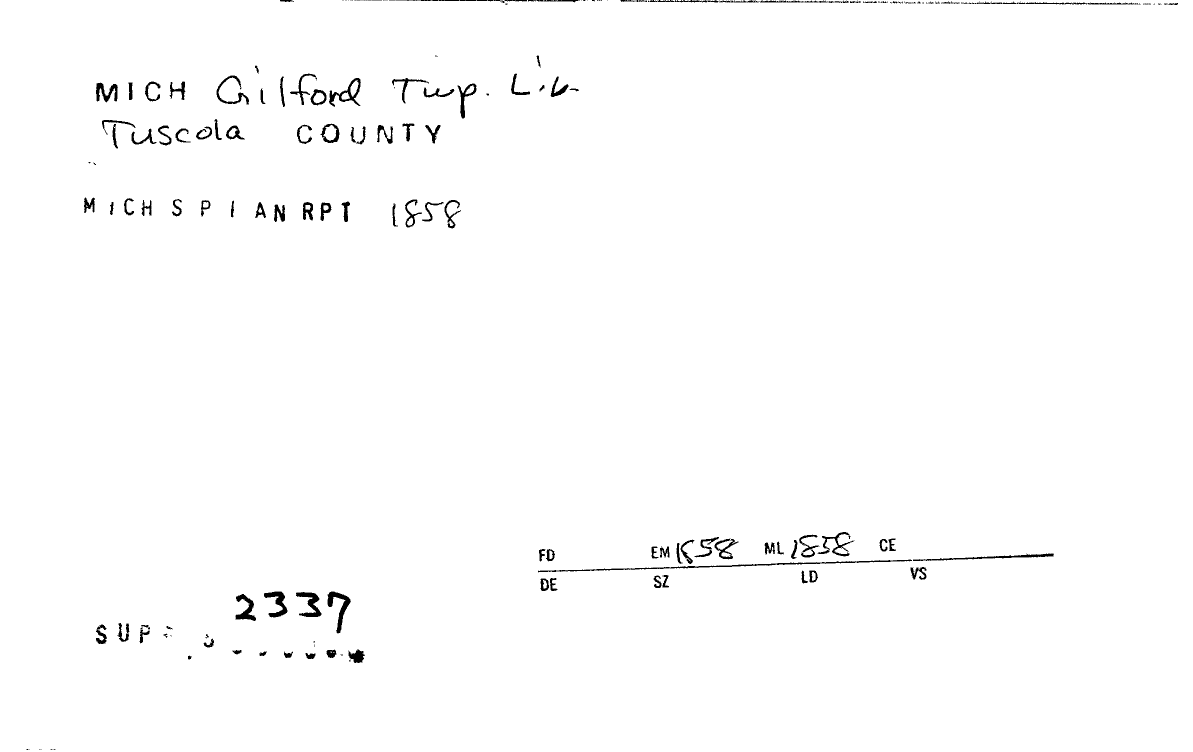 MICH Gilford Twp. Lib
Tuscola COUNTY
MICH S P I AN RPT 1858
FD EM 1858 ML 1858 CE
DE SZ LD VS
2337
SUP